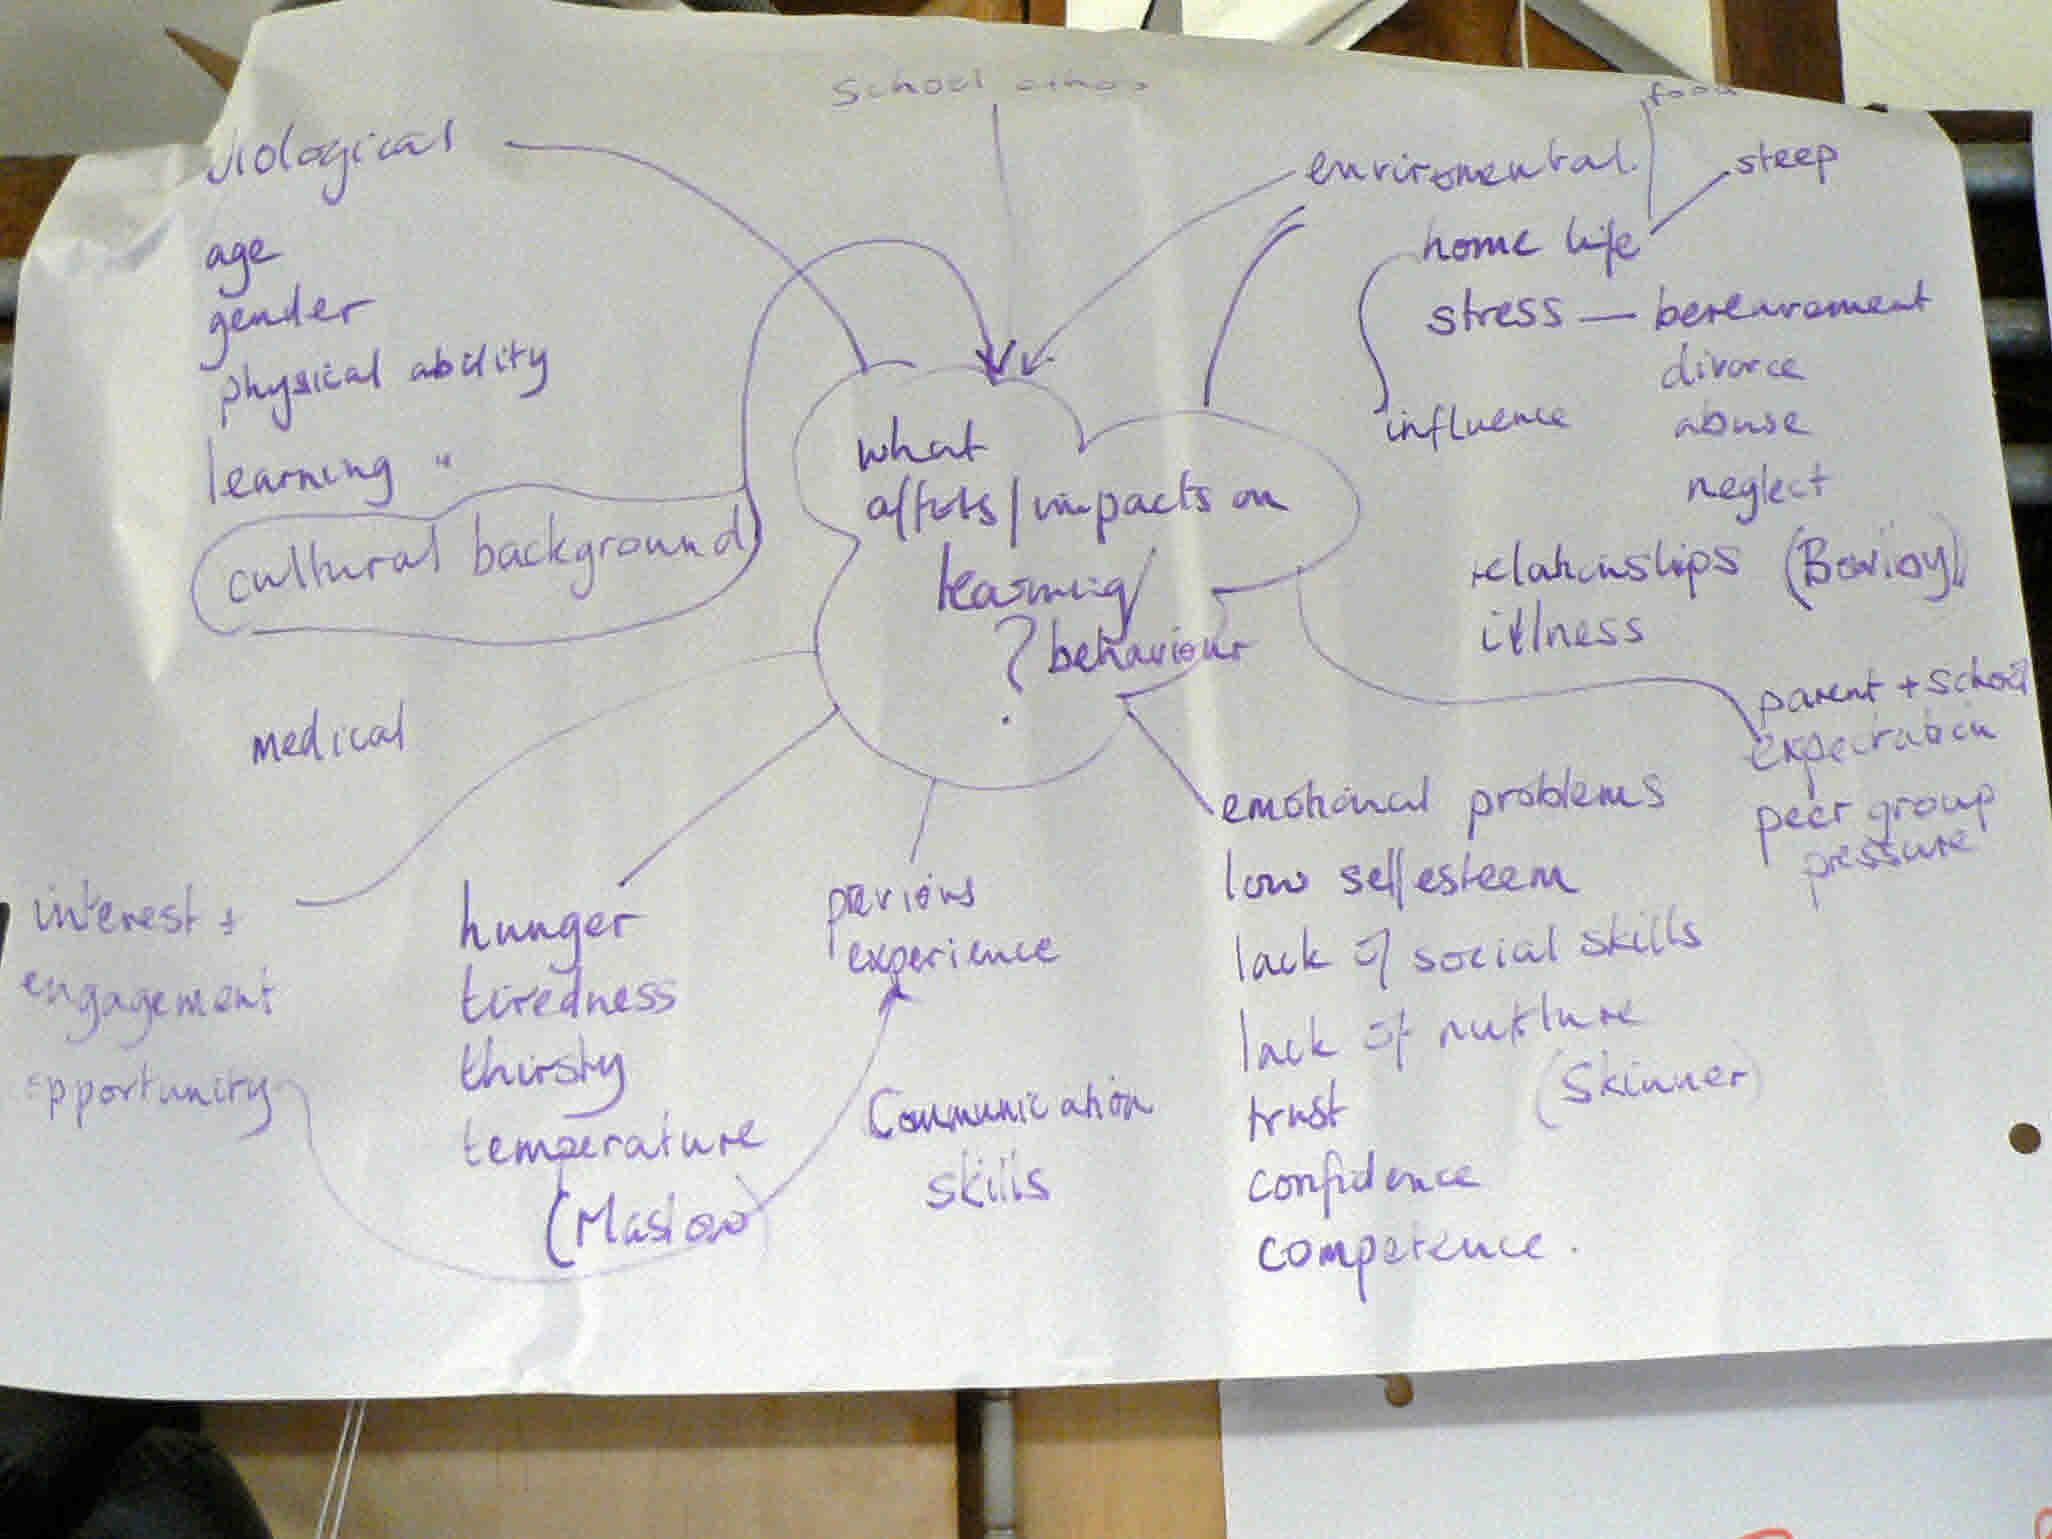 School ethos
food
biological
enviromental.
sleep
age
home life
gender
stress — bereavement
physical ability
divorce
learning "
influence
abuse
neglect
cultural background
what
affects/impacts on
learning/
? behaviour
relationships (Bowlby)
illness
medical
parent + school
expectation
peer group
pressure
interest +
engagement
opportunity
hunger
tiredness
thirsty
temperature
(Maslow)
previous
experience
Communication
skills
emotional problems
low self esteem
lack of social skills
lack of nurture
(Skinner)
trust
confidence
competence.